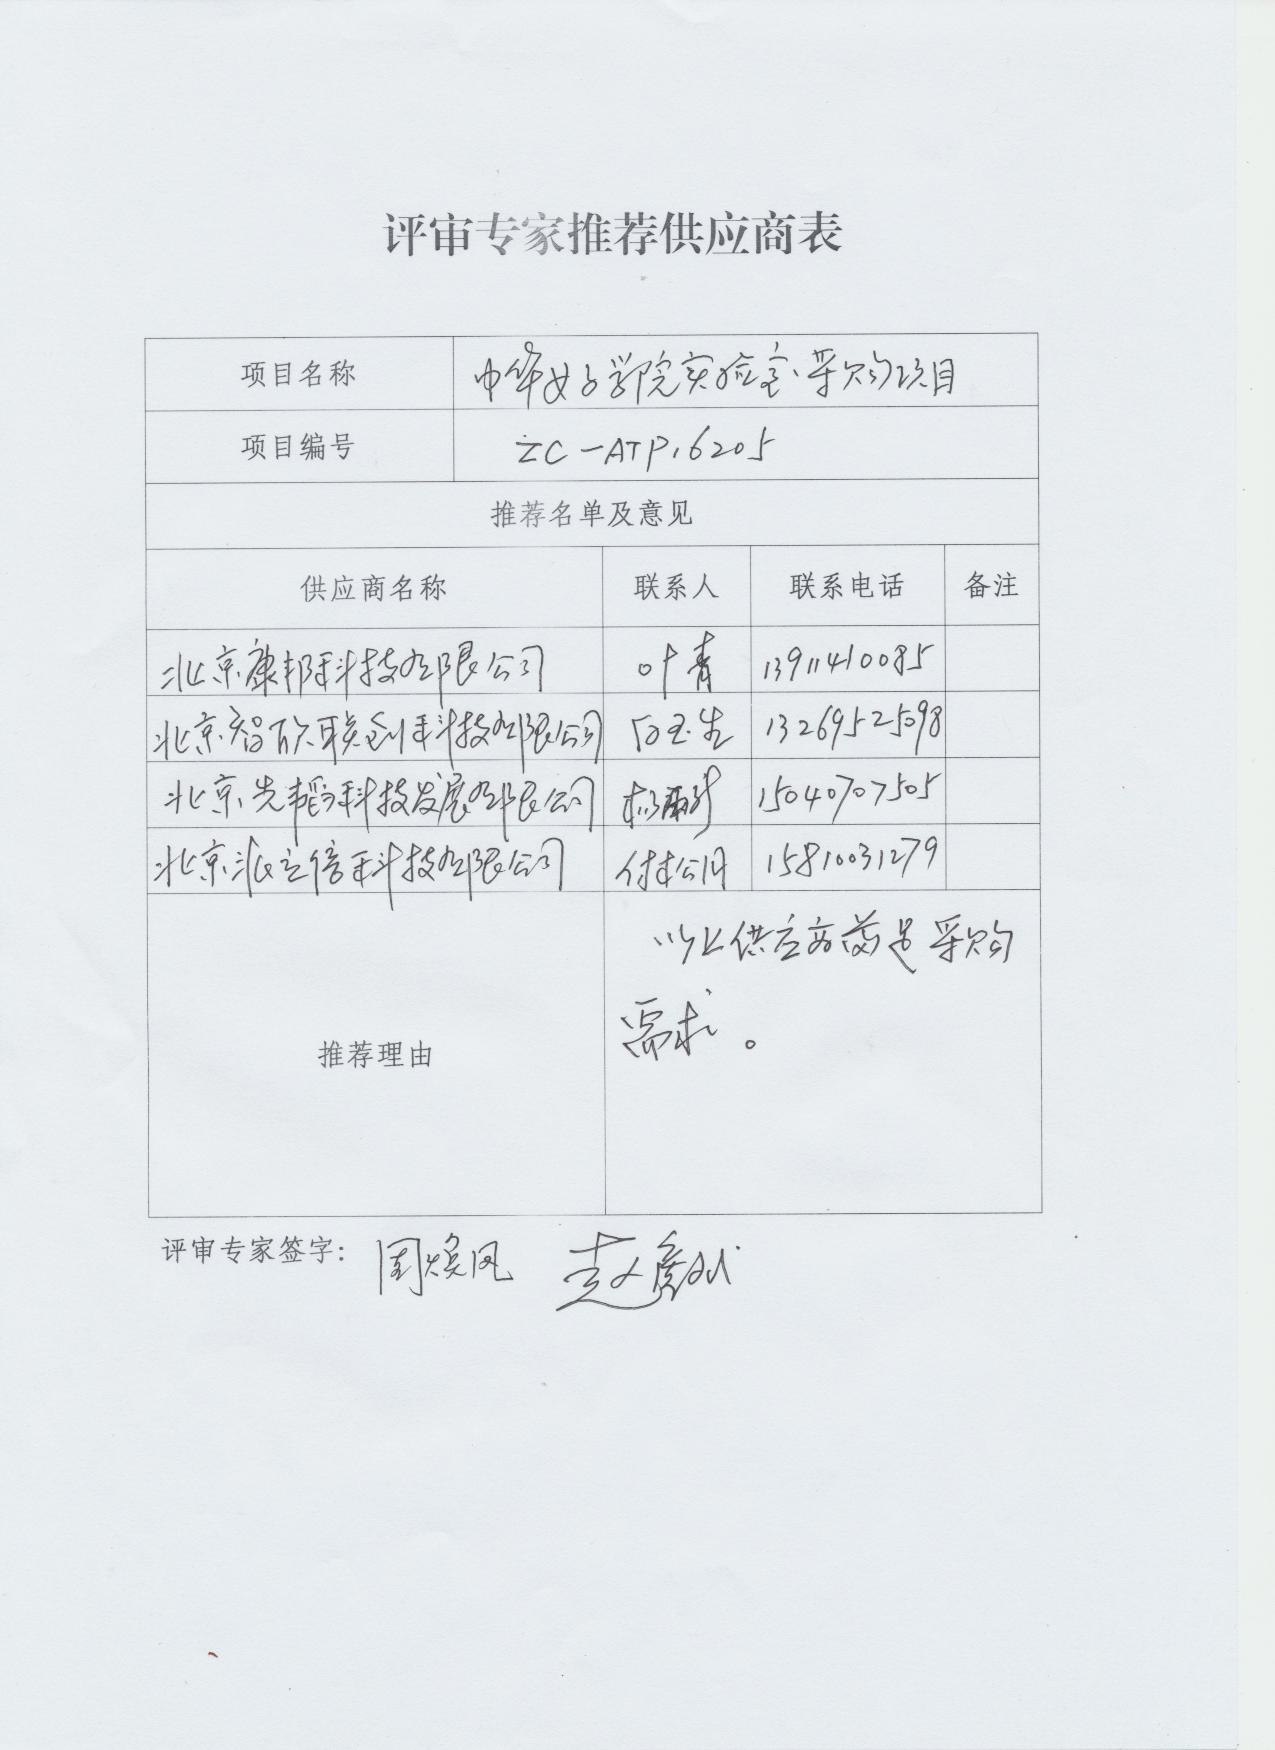 评审专家推荐供应商表
项目名称 中华女子学院实验室采购项目
项目编号 ZC-ATP16205
推荐名单及意见
供应商名称 联系人 联系电话 备注
北京康邦科技有限公司 叶青 13911410085
北京智欣联创科技有限公司 石玉生 13269525098
北京先韬科技发展有限公司 杨 15040707505
北京 立信科技有限公司 付 15810031279
推荐理由
以上供应商满足采购
需求。
评审专家签字: 周焕风 赵彦斌